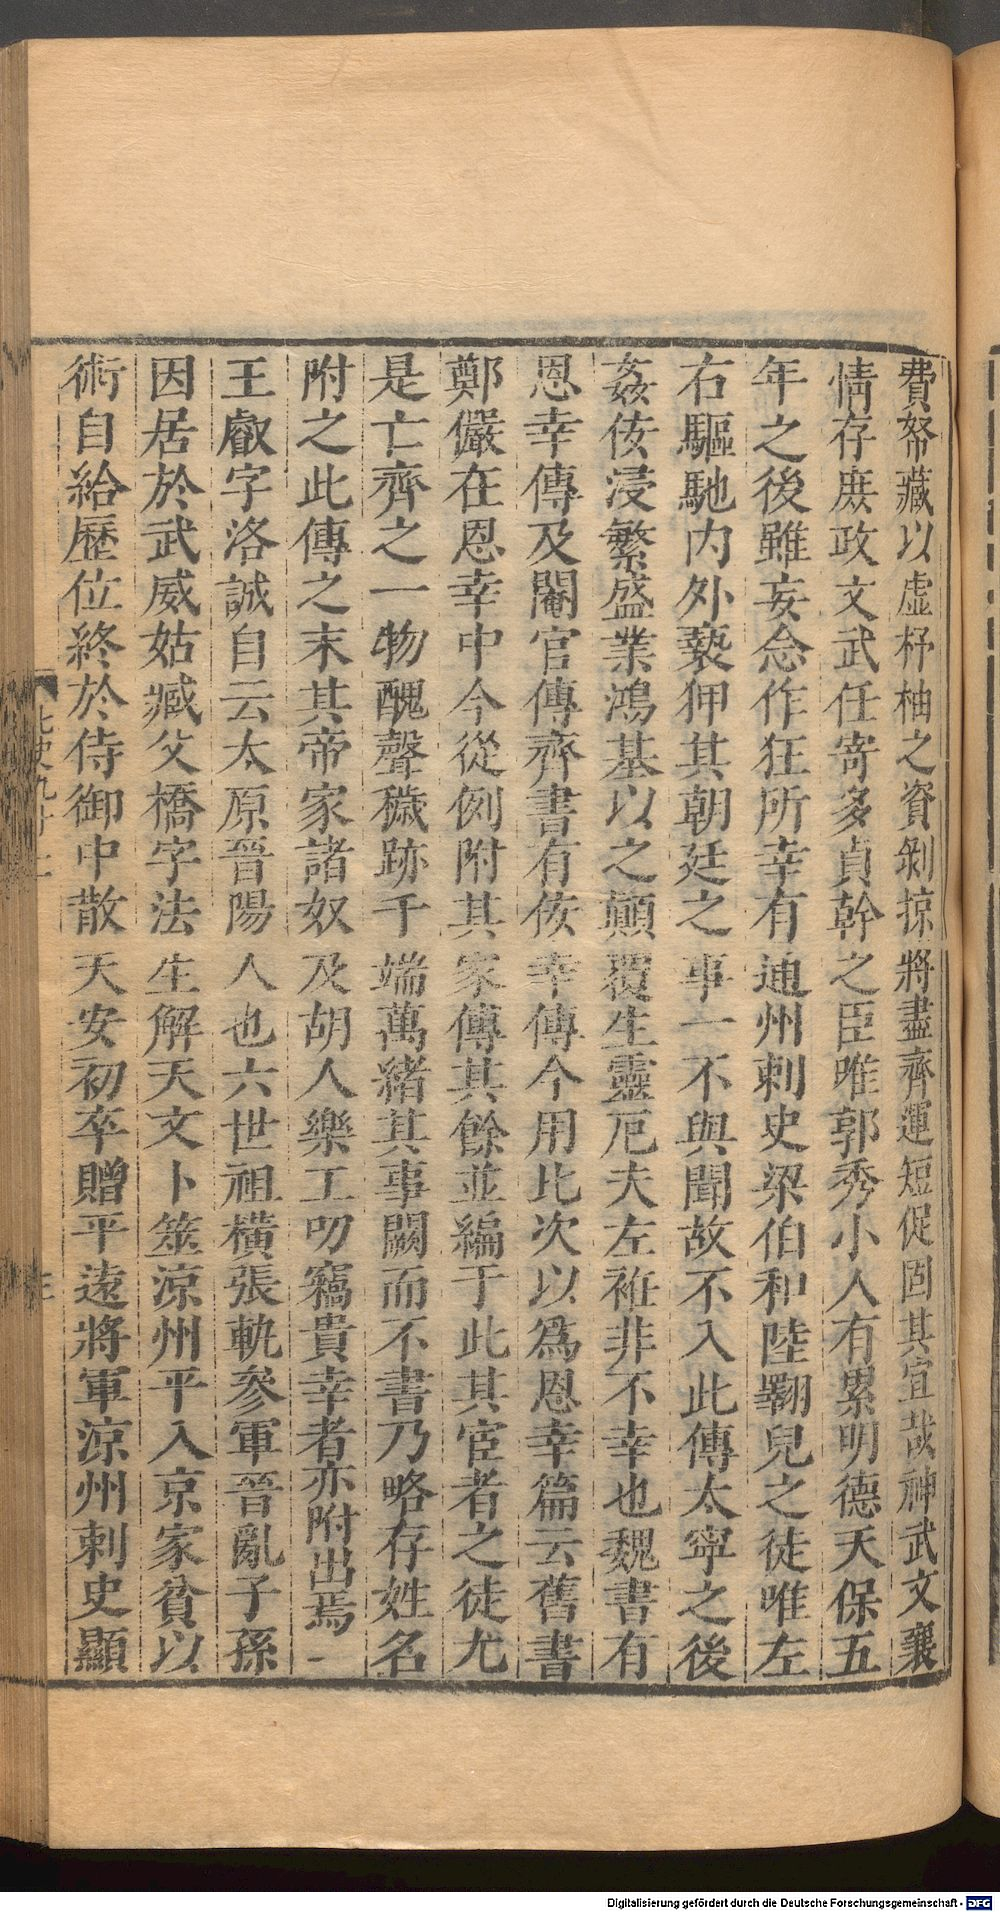 費帑藏以虛杼柚之資剝掠將盡齊運短促固其宜哉神武文襄
情存庶政文武任寄多貞幹之臣唯郭秀小人有累明德天保五
年之後雖妄念作狂所幸有通州刺史梁伯和陸翻兒之徒唯左
右驅馳内外褻狎其朝廷之事一不與聞故不入此傳太寧之後
姦佞浸繁盛業鴻基以之顚覆生靈厄夫左袵非不幸也魏書有
恩幸傳及閹官傳齊書有佞幸傳今用比次以爲恩幸篇云舊書
鄭儼在恩幸中今從例附其家傳其餘並編于此其宦者之徒尤
是亡齊之一物醜聲穢跡千端萬緒其事闕而不書乃略存姓名
附之此傳之末其帝家諸奴及胡人樂工叨竊貴幸者亦附出焉
王叡字洛誠自云太原晉陽人也六世祖橫張軌參軍晉亂子孫
因居於武威姑臧父橋字法生解天文卜筮涼州平入京家貧以
術自給歷位終於侍御中散天安初卒贈平遠將軍涼州刺史顯
Digitalisierung gefördert durch die Deutsche Forschungsgemeinschaft - DFG